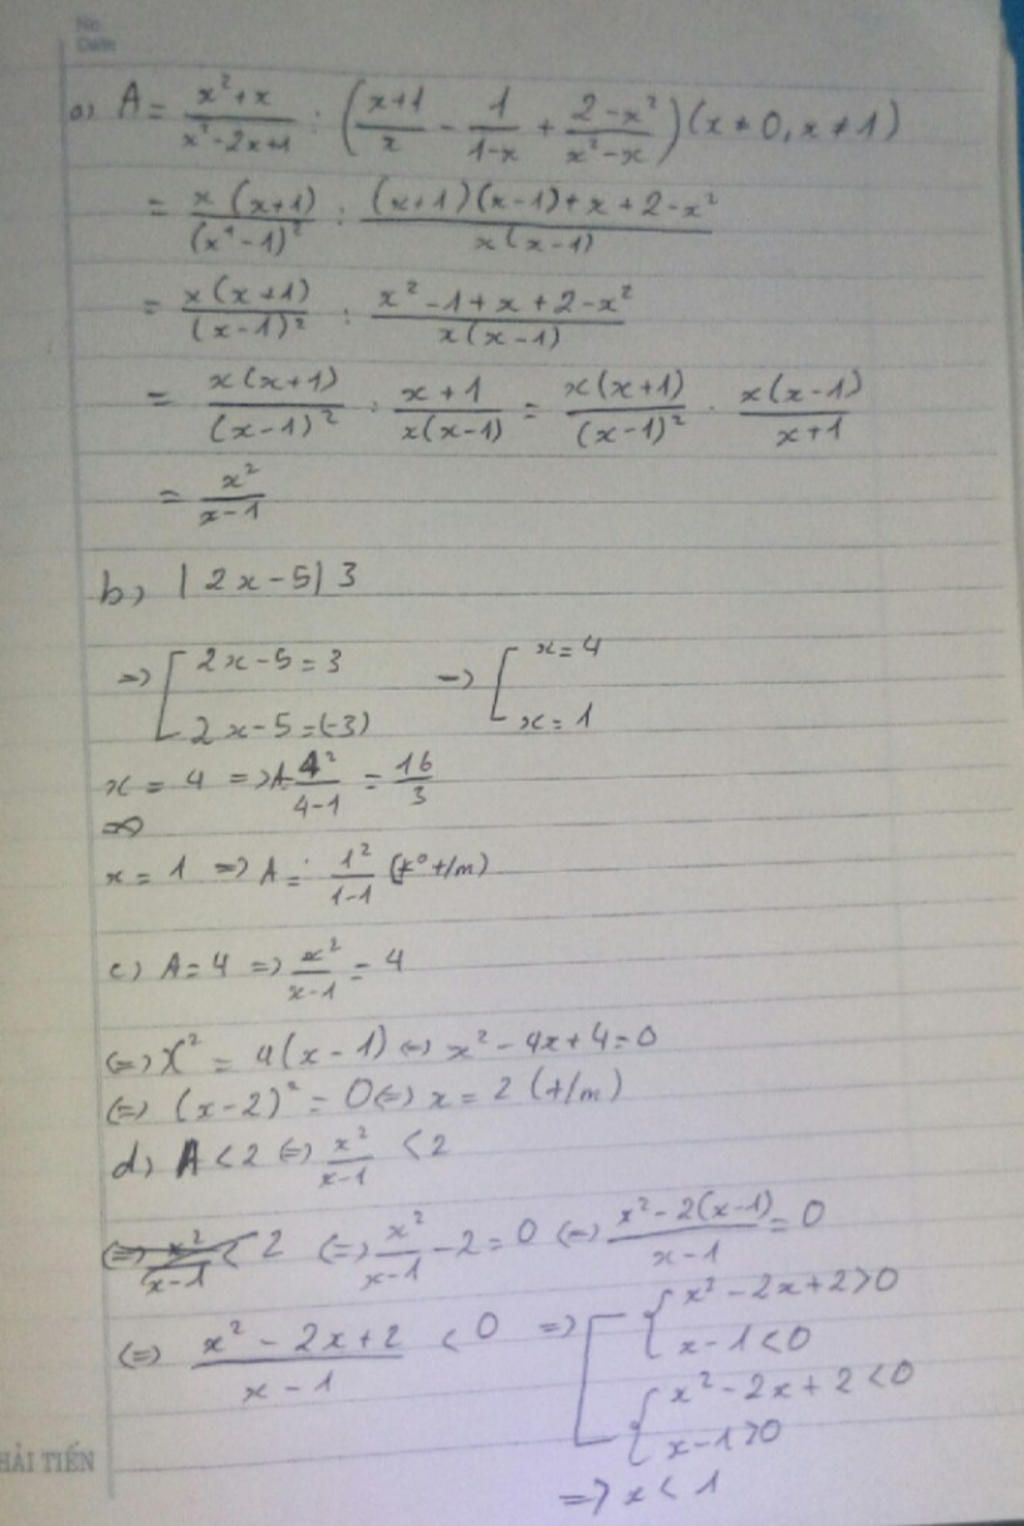 No
Date
a) A = \frac{x²+x}{x²-2x+1} : (\frac{x+1}{x} - \frac{1}{1-x} + \frac{2-x²}{x²-x}) (x ≠ 0, x ≠ 1)
= \frac{x(x+1)}{(x-1)²} : \frac{(x+1)(x-1)+x+2-x²}{x(x-1)}
= \frac{x(x+1)}{(x-1)²} : \frac{x²-1+x+2-x²}{x(x-1)}
= \frac{x(x+1)}{(x-1)²} : \frac{x+1}{x(x-1)} = \frac{x(x+1)}{(x-1)²} . \frac{x(x-1)}{x+1}
= \frac{x²}{x-1}
b) |2x-5| 3
=> [ 2x-5=3 => [ x=4
2x-5=(-3) x=1
x = 4 => A = \frac{4²}{4-1} = \frac{16}{3}
x = 1 => A = \frac{1²}{1-1} (k° t/m)
c) A=4 => \frac{x²}{x-1} = 4
<=> x² = 4(x-1) <=> x²-4x+4=0
<=> (x-2)² = 0 <=> x = 2 (t/m)
d) A<2 <=> \frac{x²}{x-1} < 2
<=> \frac{x²}{x-1} < 2 <=> \frac{x²}{x-1} - 2 = 0 <=> \frac{x²-2(x-1)}{x-1} = 0
<=> \frac{x²-2x+2}{x-1} < 0 => [ { x²-2x+2>0
x-1<0
{ x²-2x+2<0
x-1>0
=> x < 1
HẢI TIẾN